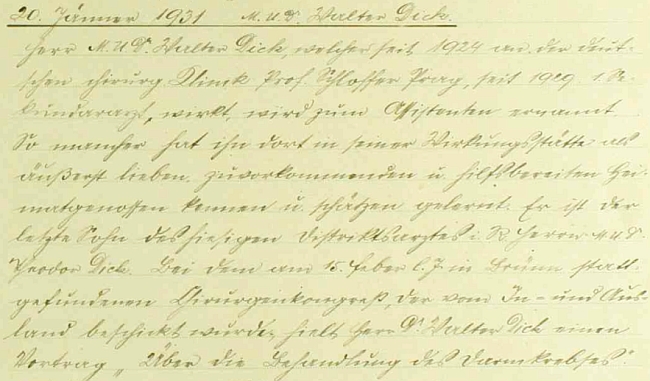 20. Jänner 1931 M.U.Dr. Walter Dick.
Herr M.U.Dr. Walter Dick, welcher seit 1924 an der deut-
schen chirurg. Klinik Prof. Schloffer Prag, seit 1929 1. Se-
kundararzt, wirkt, wird zum Assistenten ernannt
So mancher hat ihn dort in seiner Wirkungsstätte als
äußerst lieben zuvorkommenden u. hilfsbereiten Hei-
matgenossen kennen u. schätzen gelernt. Er ist der
letzte Sohn des hiesigen Distriktsarztes i. R. Herrn M.U.Dr.
Theodor Dick. Bei dem am 15. Feber l. J. in Brünn statt-
gefundenen Chirurgenkongreß, der vom In- und Aus-
land beschickt wurde, hielt Herr Dr. Walter Dick einen
Vortrag „Über die Behandlung des Darmkrebses".